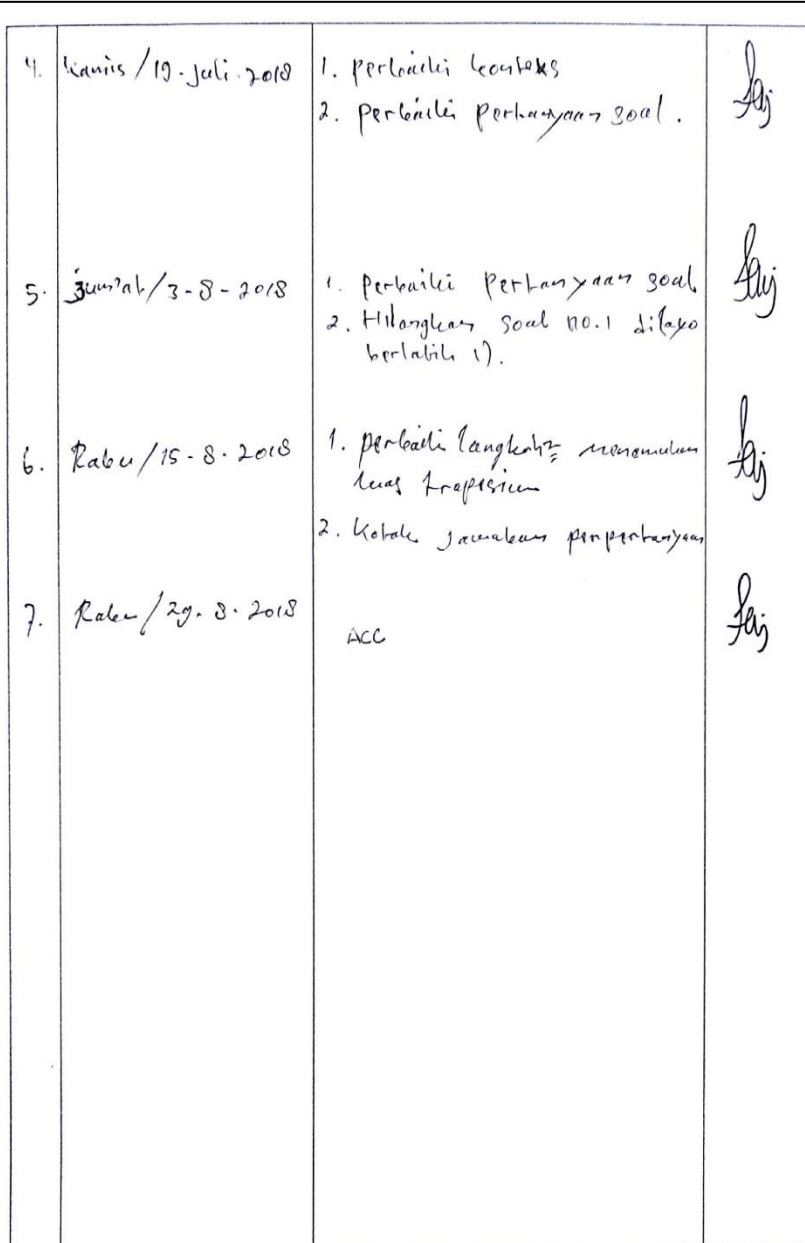 4. Kamis / 19. Juli. 2018
1. perbaiki konteks
2. perbaiki pertanyaan soal.
5. Jum'at / 3 - 8 - 2018
1. perbaiki pertanyaan soal
2. Hilangkan soal no. 1 di ayo
berlatih 1).
6. Rabu / 15 - 8 - 2018
1. perbaiki langkah2 menemukan
luas trapesium
2. Kotak jawaban perpertanyaan
7. Rabu / 29. 8. 2018
ACC